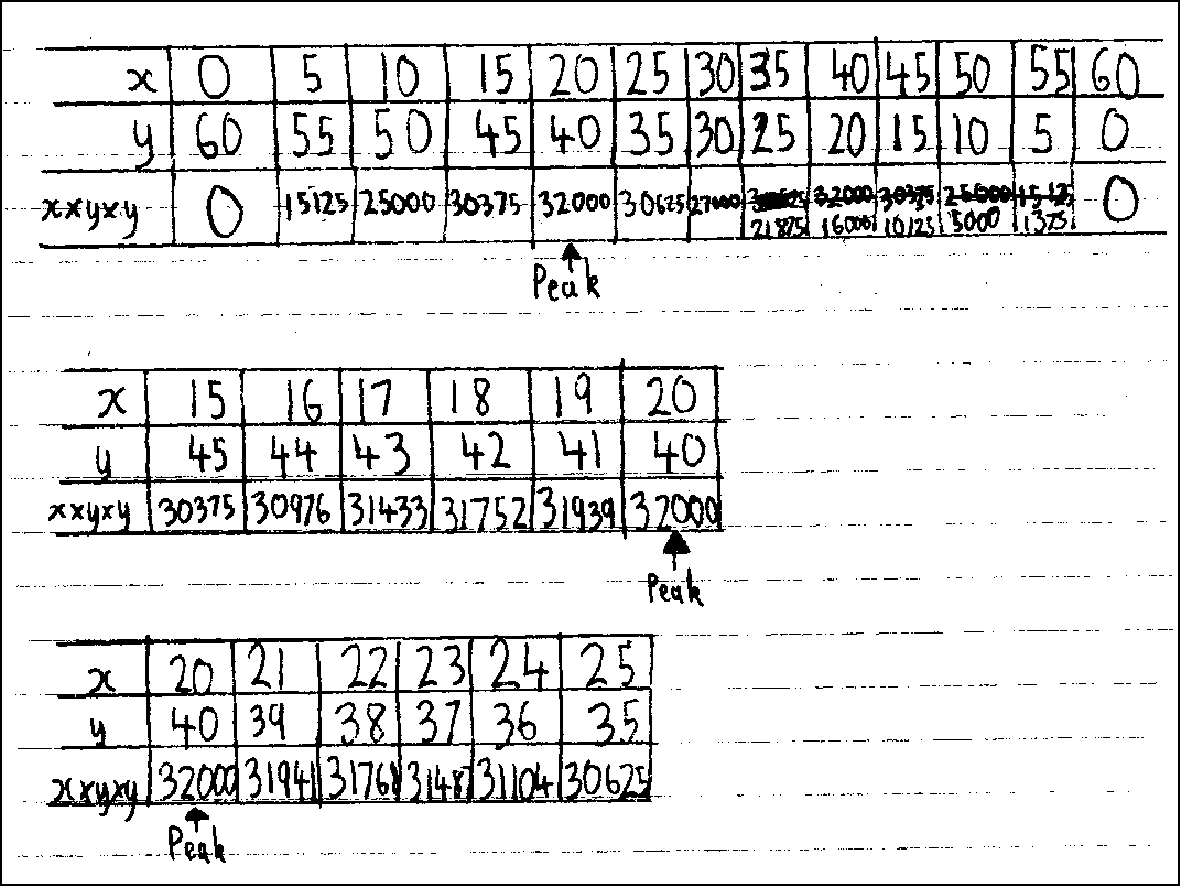 x 0 5 10 15 20 25 30 35 40 45 50 55 60
y 60 55 50 45 40 35 30 25 20 15 10 5 0
x×y×y 0 15125 25000 30375 32000 30625 27000 32000 30375 25000 15125 0
21875 16000 10125 5000 1375
Peak
x 15 16 17 18 19 20
y 45 44 43 42 41 40
x×y×y 30375 30976 31433 31752 31939 32000
Peak
x 20 21 22 23 24 25
y 40 39 38 37 36 35
x×y×y 32000 31941 31768 31487 31104 30625
Peak